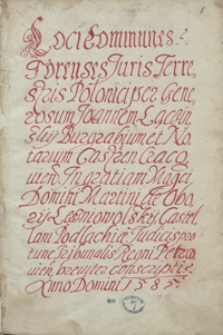 Loci Communes
Forenses Juris Terre-
stris Polonici per Gene-
rosum Joannem Łączin-
sky Burgrabium et No-
tarium Castren Craco-
vien. In gratiam Magci
Domini Martini de Obo-
ry Leśniowolsky Castel-
lani Podlachiæ Judicis pro
tunc Tribunalis Regni Petrico-
vien. breviter conscripti
Anno Domini 1585